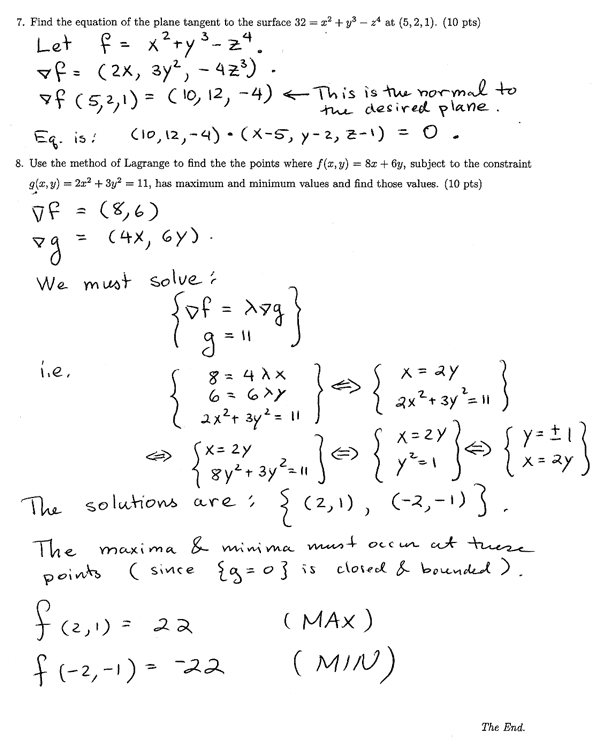 7. Find the equation of the plane tangent to the surface 32 = x² + y³ − z⁴ at (5, 2, 1). (10 pts)
Let f = x² + y³ − z⁴.
∇f = (2x, 3y², −4z³).
∇f (5,2,1) = (10, 12, −4) ← This is the normal to
the desired plane.
Eq. is: (10, 12, −4) • (x−5, y−2, z−1) = 0.
8. Use the method of Lagrange to find the the points where f(x, y) = 8x + 6y, subject to the constraint
g(x, y) = 2x² + 3y² = 11, has maximum and minimum values and find those values. (10 pts)
∇f = (8,6)
∇g = (4x, 6y).
We must solve:
{ ∇f = λ∇g
g = 11 }
i.e.
{ 8 = 4λx
6 = 6λy
2x² + 3y² = 11 } ⇔ { x = 2y
2x² + 3y² = 11 }
⇔ { x = 2y
8y² + 3y² = 11 } ⇔ { x = 2y
y² = 1 } ⇔ { y = ±1
x = 2y }
The solutions are: { (2,1), (−2,−1) }.
The maxima & minima must occur at these
points (since {g = 0} is closed & bounded).
f (2,1) = 22 (MAX)
f (−2,−1) = −22 (MIN)
The End.